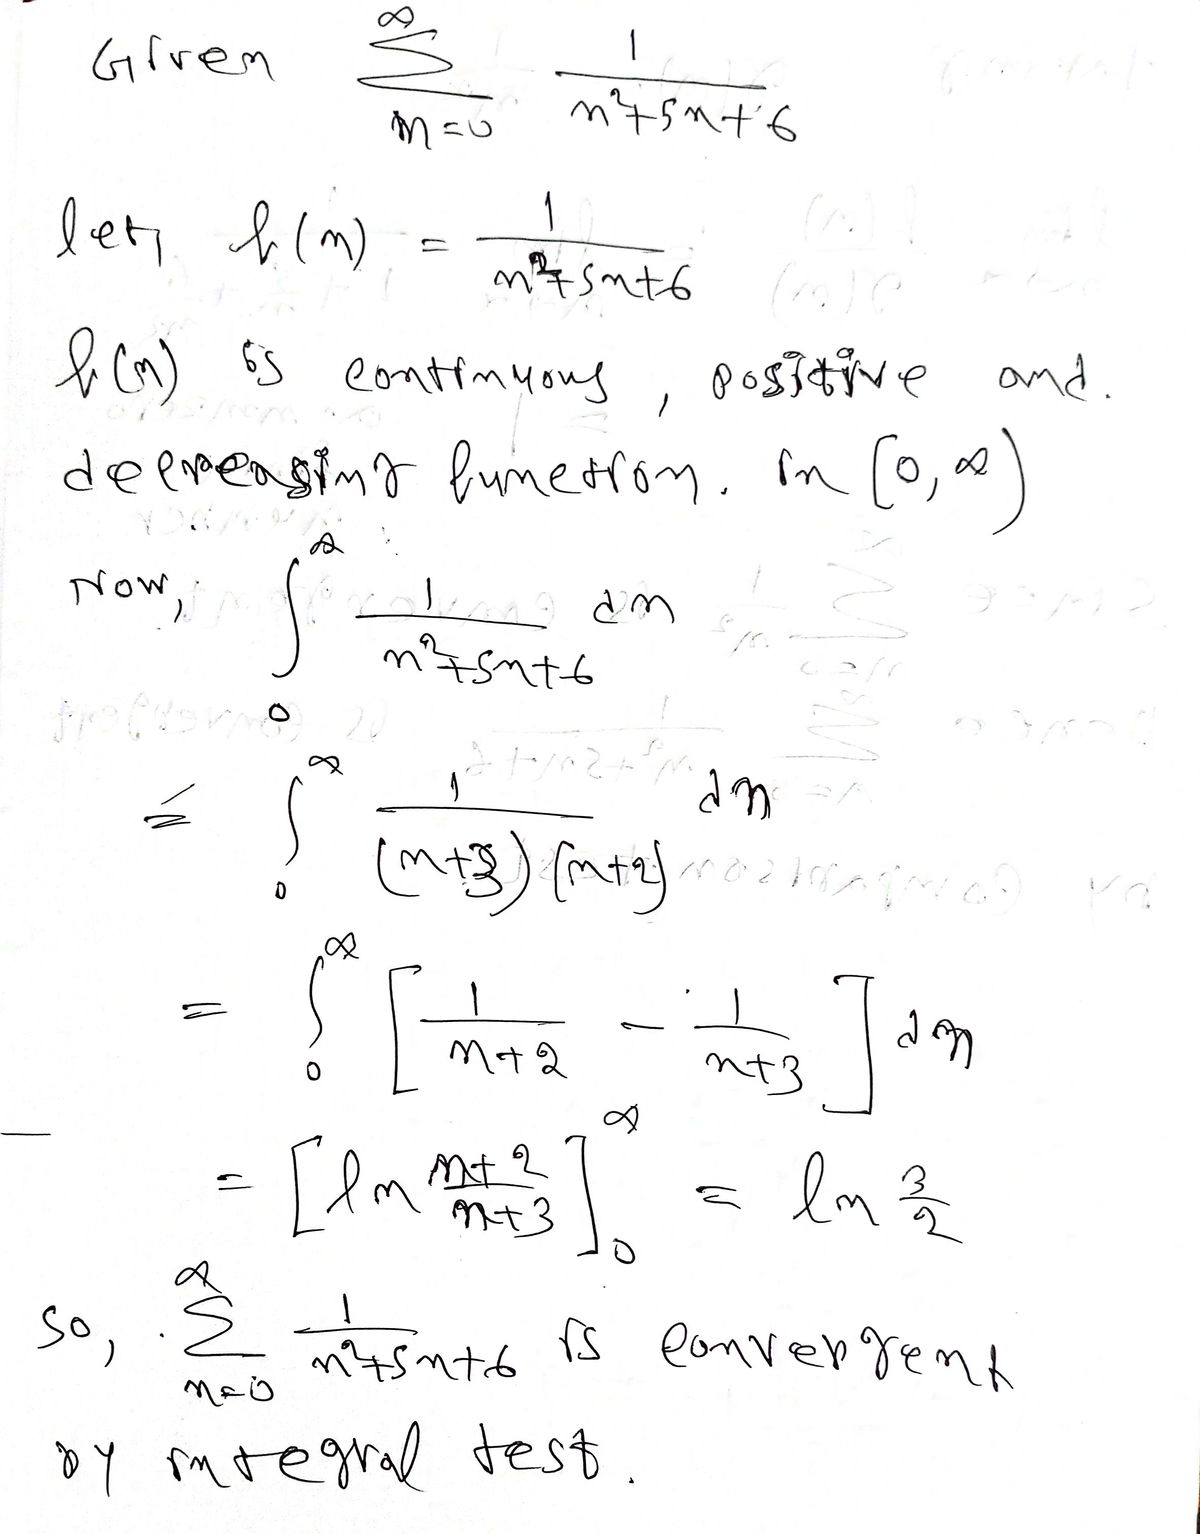 Given ∑_{n=0}^{∞} 1/(n²+5n+6)
let, f(n) = 1/(n²+5n+6)
f(n) is continuous, positive and.
decreasing function. in [0, ∞)
Now, ∫_{0}^{∞} 1/(n²+5n+6) dn
= ∫_{0}^{∞} 1/((n+3)(n+2)) dn
= ∫_{0}^{∞} [1/(n+2) - 1/(n+3)] dn
= [ln (n+2)/(n+3)]_{0}^{∞} = ln 3/2
so, ∑_{n=0}^{∞} 1/(n²+5n+6) is convergent
by integral test.